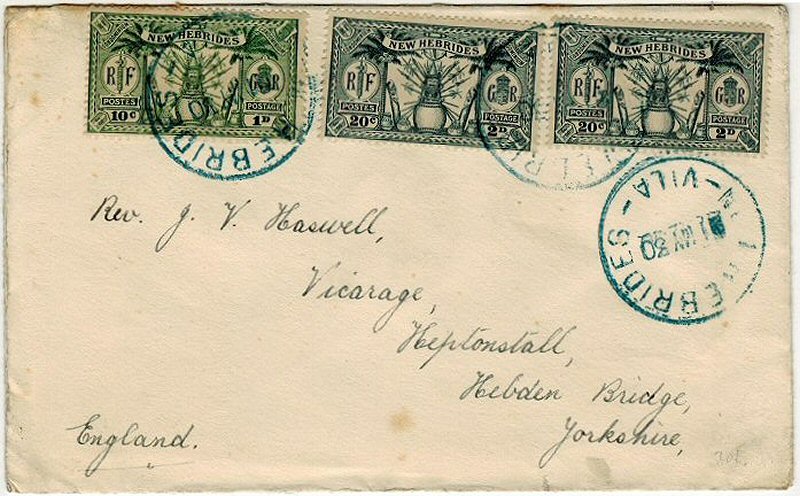 NEW HEBRIDES
RF
GR
POSTES
POSTAGE
10c
1D
NEW HEBRIDES
RF
GR
POSTES
POSTAGE
20c
2D
NEW HEBRIDES
RF
GR
POSTES
POSTAGE
20c
2D
HEBRIDES
- VILA -
MY 30
Rev. J. V. Haswell,
Vicarage,
Heptonstall,
Hebden Bridge,
Yorkshire,
England.